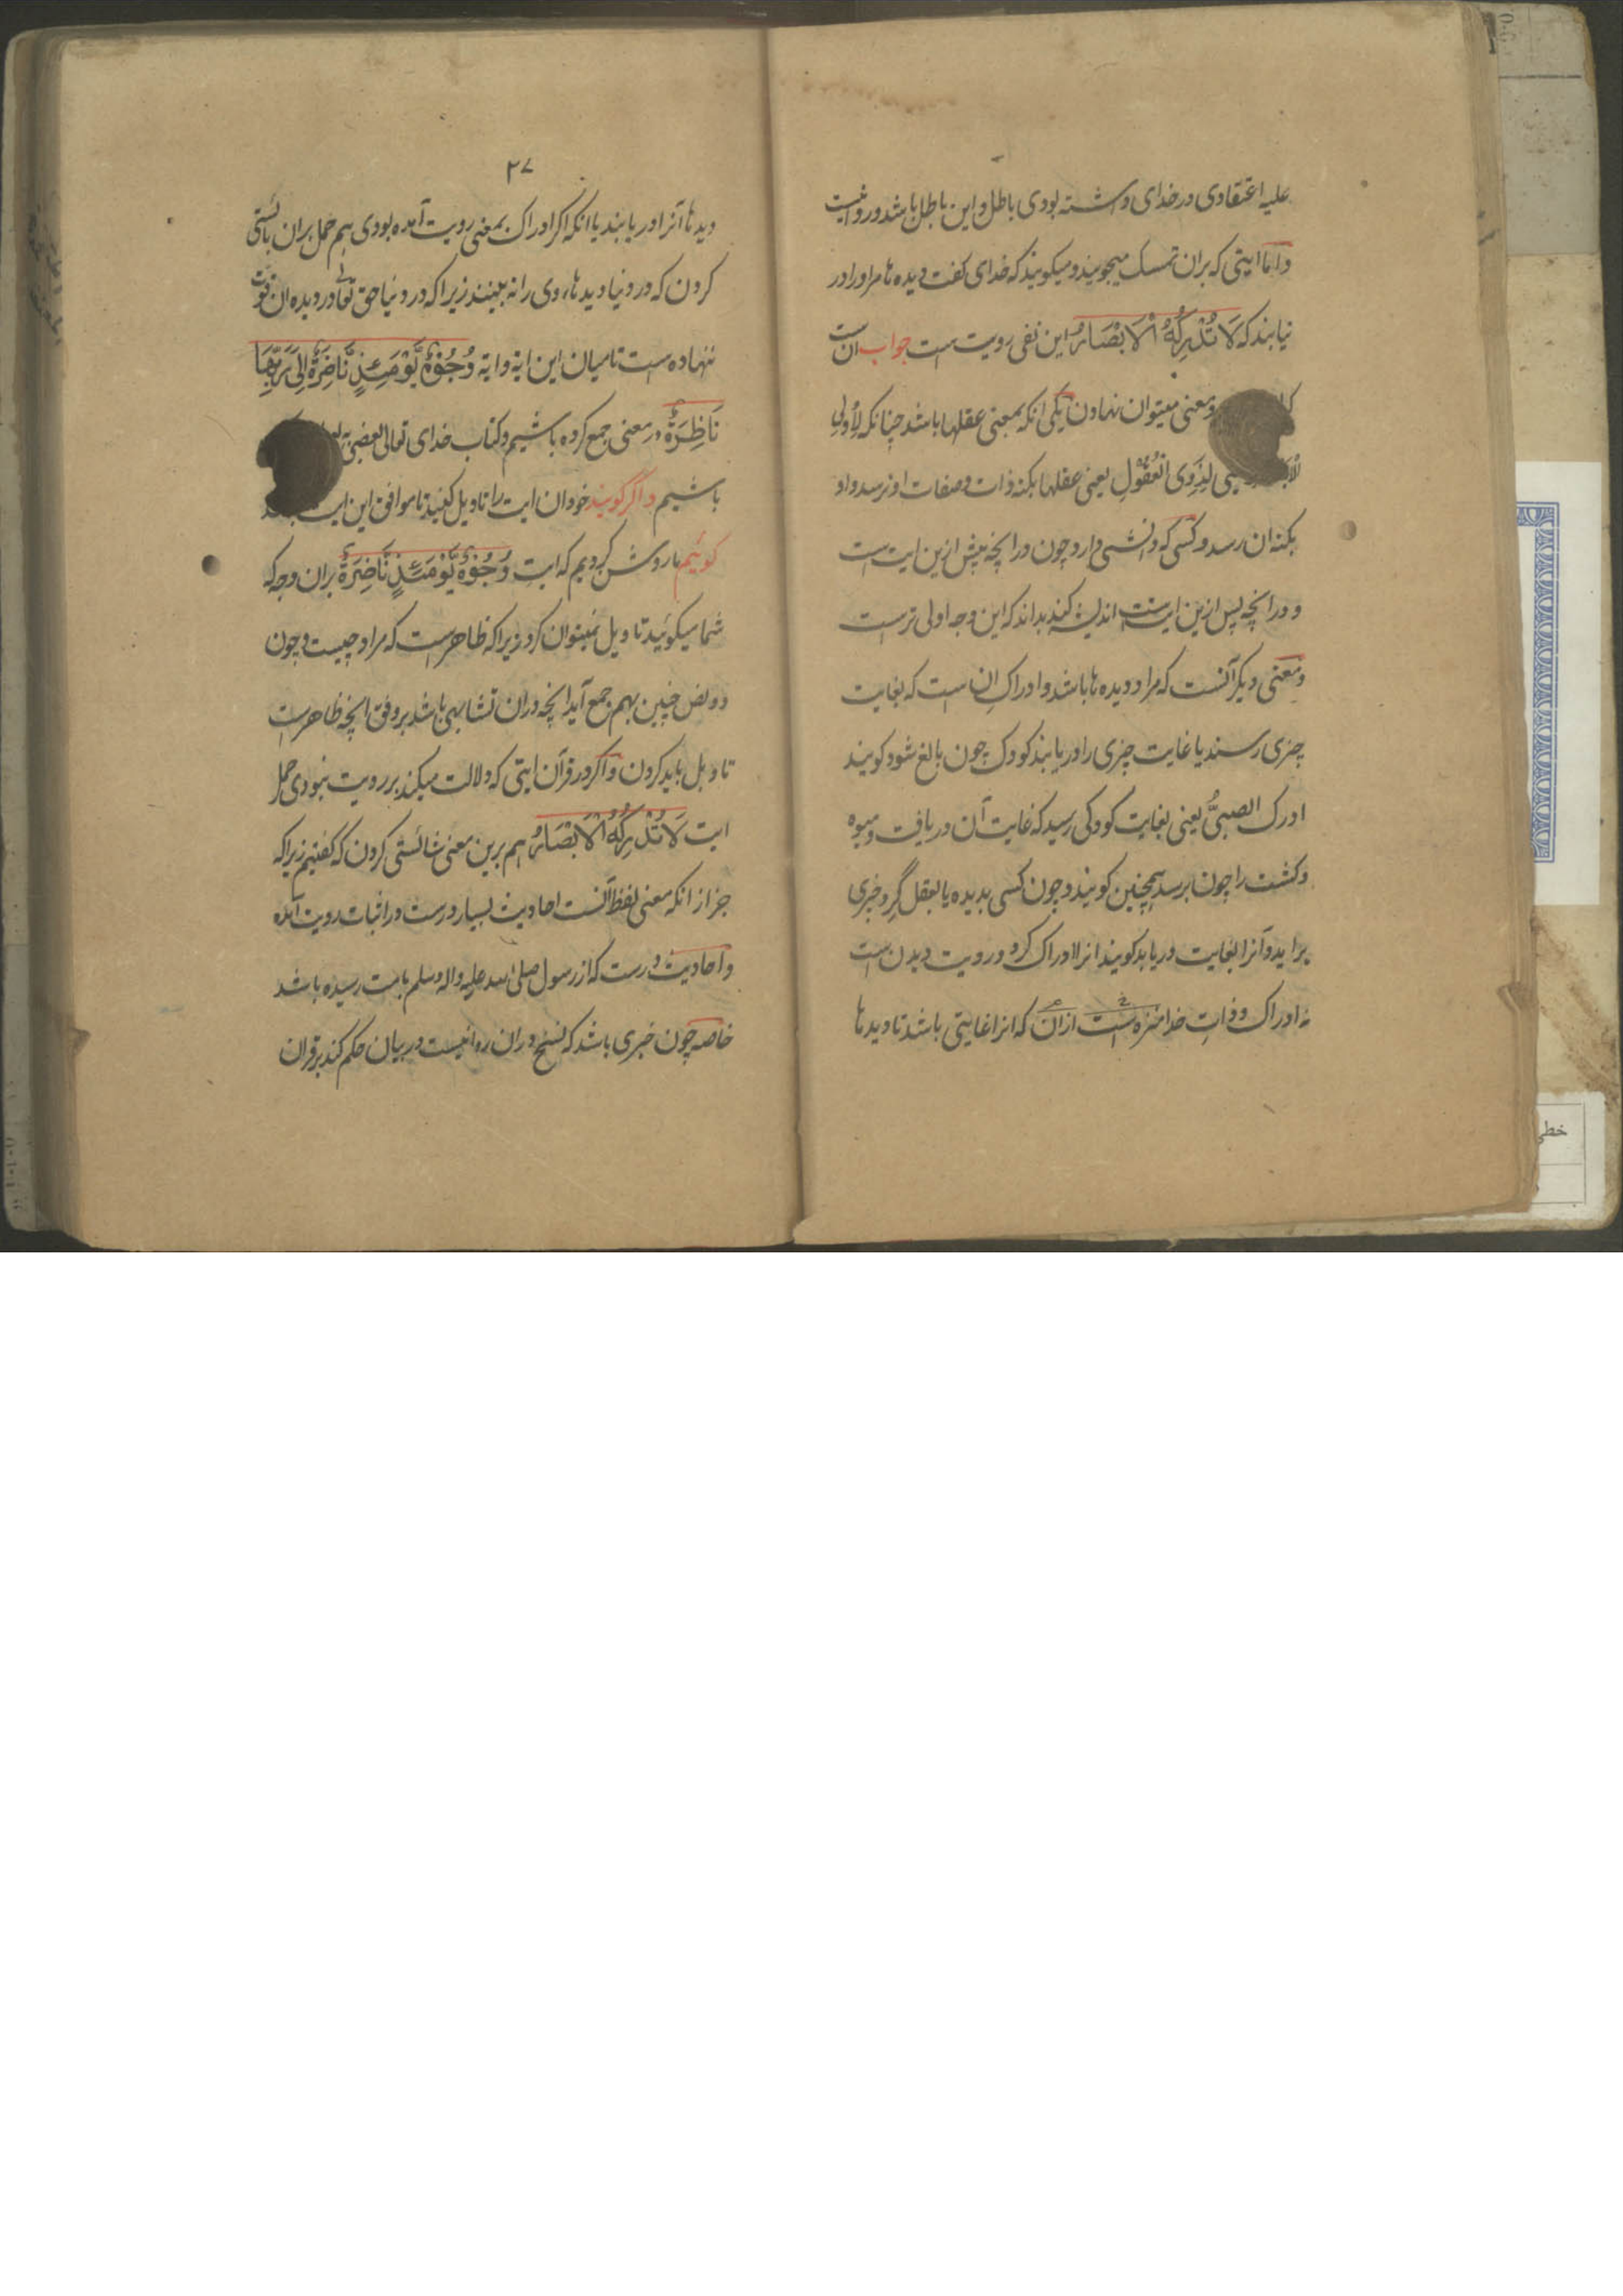 علیه اعتقادی در خدای داشته بودی باطل و این باطل باشد و روا نیست
و اما ایتی که بران تمسک میجویند و میکویند که خدای کفت دیده ها مر او را در
نیابند که لَا تُدْرِکُهُ الْاَبْصَارُ این نفی رویت است جواب ان است
و معنی میتوان نهادن یکی انکه بمعنی عقلها باشد چنانکه لِأُولِی
لِذَوِی الْعُقُولِ یعنی عقلها بکنه ذات و صفات او نرسد و او
بکنه ان رسد و کسی که دانشی دارد چون در انچه پیش ازین ایت است
و در انچه پس ازین ایت است اندیشه کند بداند که این وجه اولی ترست
و معنی دیکر آنست که مراد دیده ها باشد و ادراک ان است که بغایت
چیزی رسند یا غایت چیزی را دریابند کودک چون بالغ شود کویند
ادرک الصبیُّ یعنی بغایت کودکی رسید که غایت آن دریافت و میوه
و کشت را چون برسد همچنین کویند و چون کسی بدیده یا بعقل گرد چیزی
براید و آنرا بغایت دریابد کویند انرا ادراک کرد و رویت دیدن است
نه ادراک و ذات خدا منزه است ازان که انرا غایتی باشد تا دیدها
۲۷
دیدها آنرا دریابند یا انکه اکر ادراک بمعنی رویت آمده بودی هم حمل بران بایستی
کردن که در دنیا دیدها، وی را نه بینند زیرا که در دنیا حق تعالی در دیده ان قوت
ننهاده است تا میان این ایة و ایة وُجُوْهٌ یَّوْمَئِذٍ نَّاضِرَةٌ اِلٰی رَبِّهَا
نَاظِرَةٌ در معنی جمع کرده باشیم و کتاب خدای تعالی بعضی به
باشیم و اگر گویند خود ان ایت را تاویل کنید تا موافق این ایت
کوئیم ما روشن کردیم که ایت وُجُوْهٌ یَّوْمَئِذٍ نَّاضِرَةٌ بران وجه که
شما میکوئید تاویل نمیتوان کرد زیرا که ظاهرست که مراد چیست و چون
دو نص چنین بهم جمع آید انچه دران تشابهی باشد بر وفق انچه ظاهرست
تاویل باید کردن و اکر در قرآن ایتی که دلالت میکند بر رویت نبودی حمل
ایت لَا تُدْرِکُهُ الْاَبْصَارُ هم برین معنی شائستی کردن که کفتیم زیرا که
جز از انکه معنی لفظ آنست احادیث بسیار درست در اثبات رویت آمده
و احادیث درست که از رسول صلی الله علیه واله وسلم بامت رسیده باشد
خاصه چون خبری باشد که نسخ دران روا نیست در بیان حکم کند بر قران
خطی